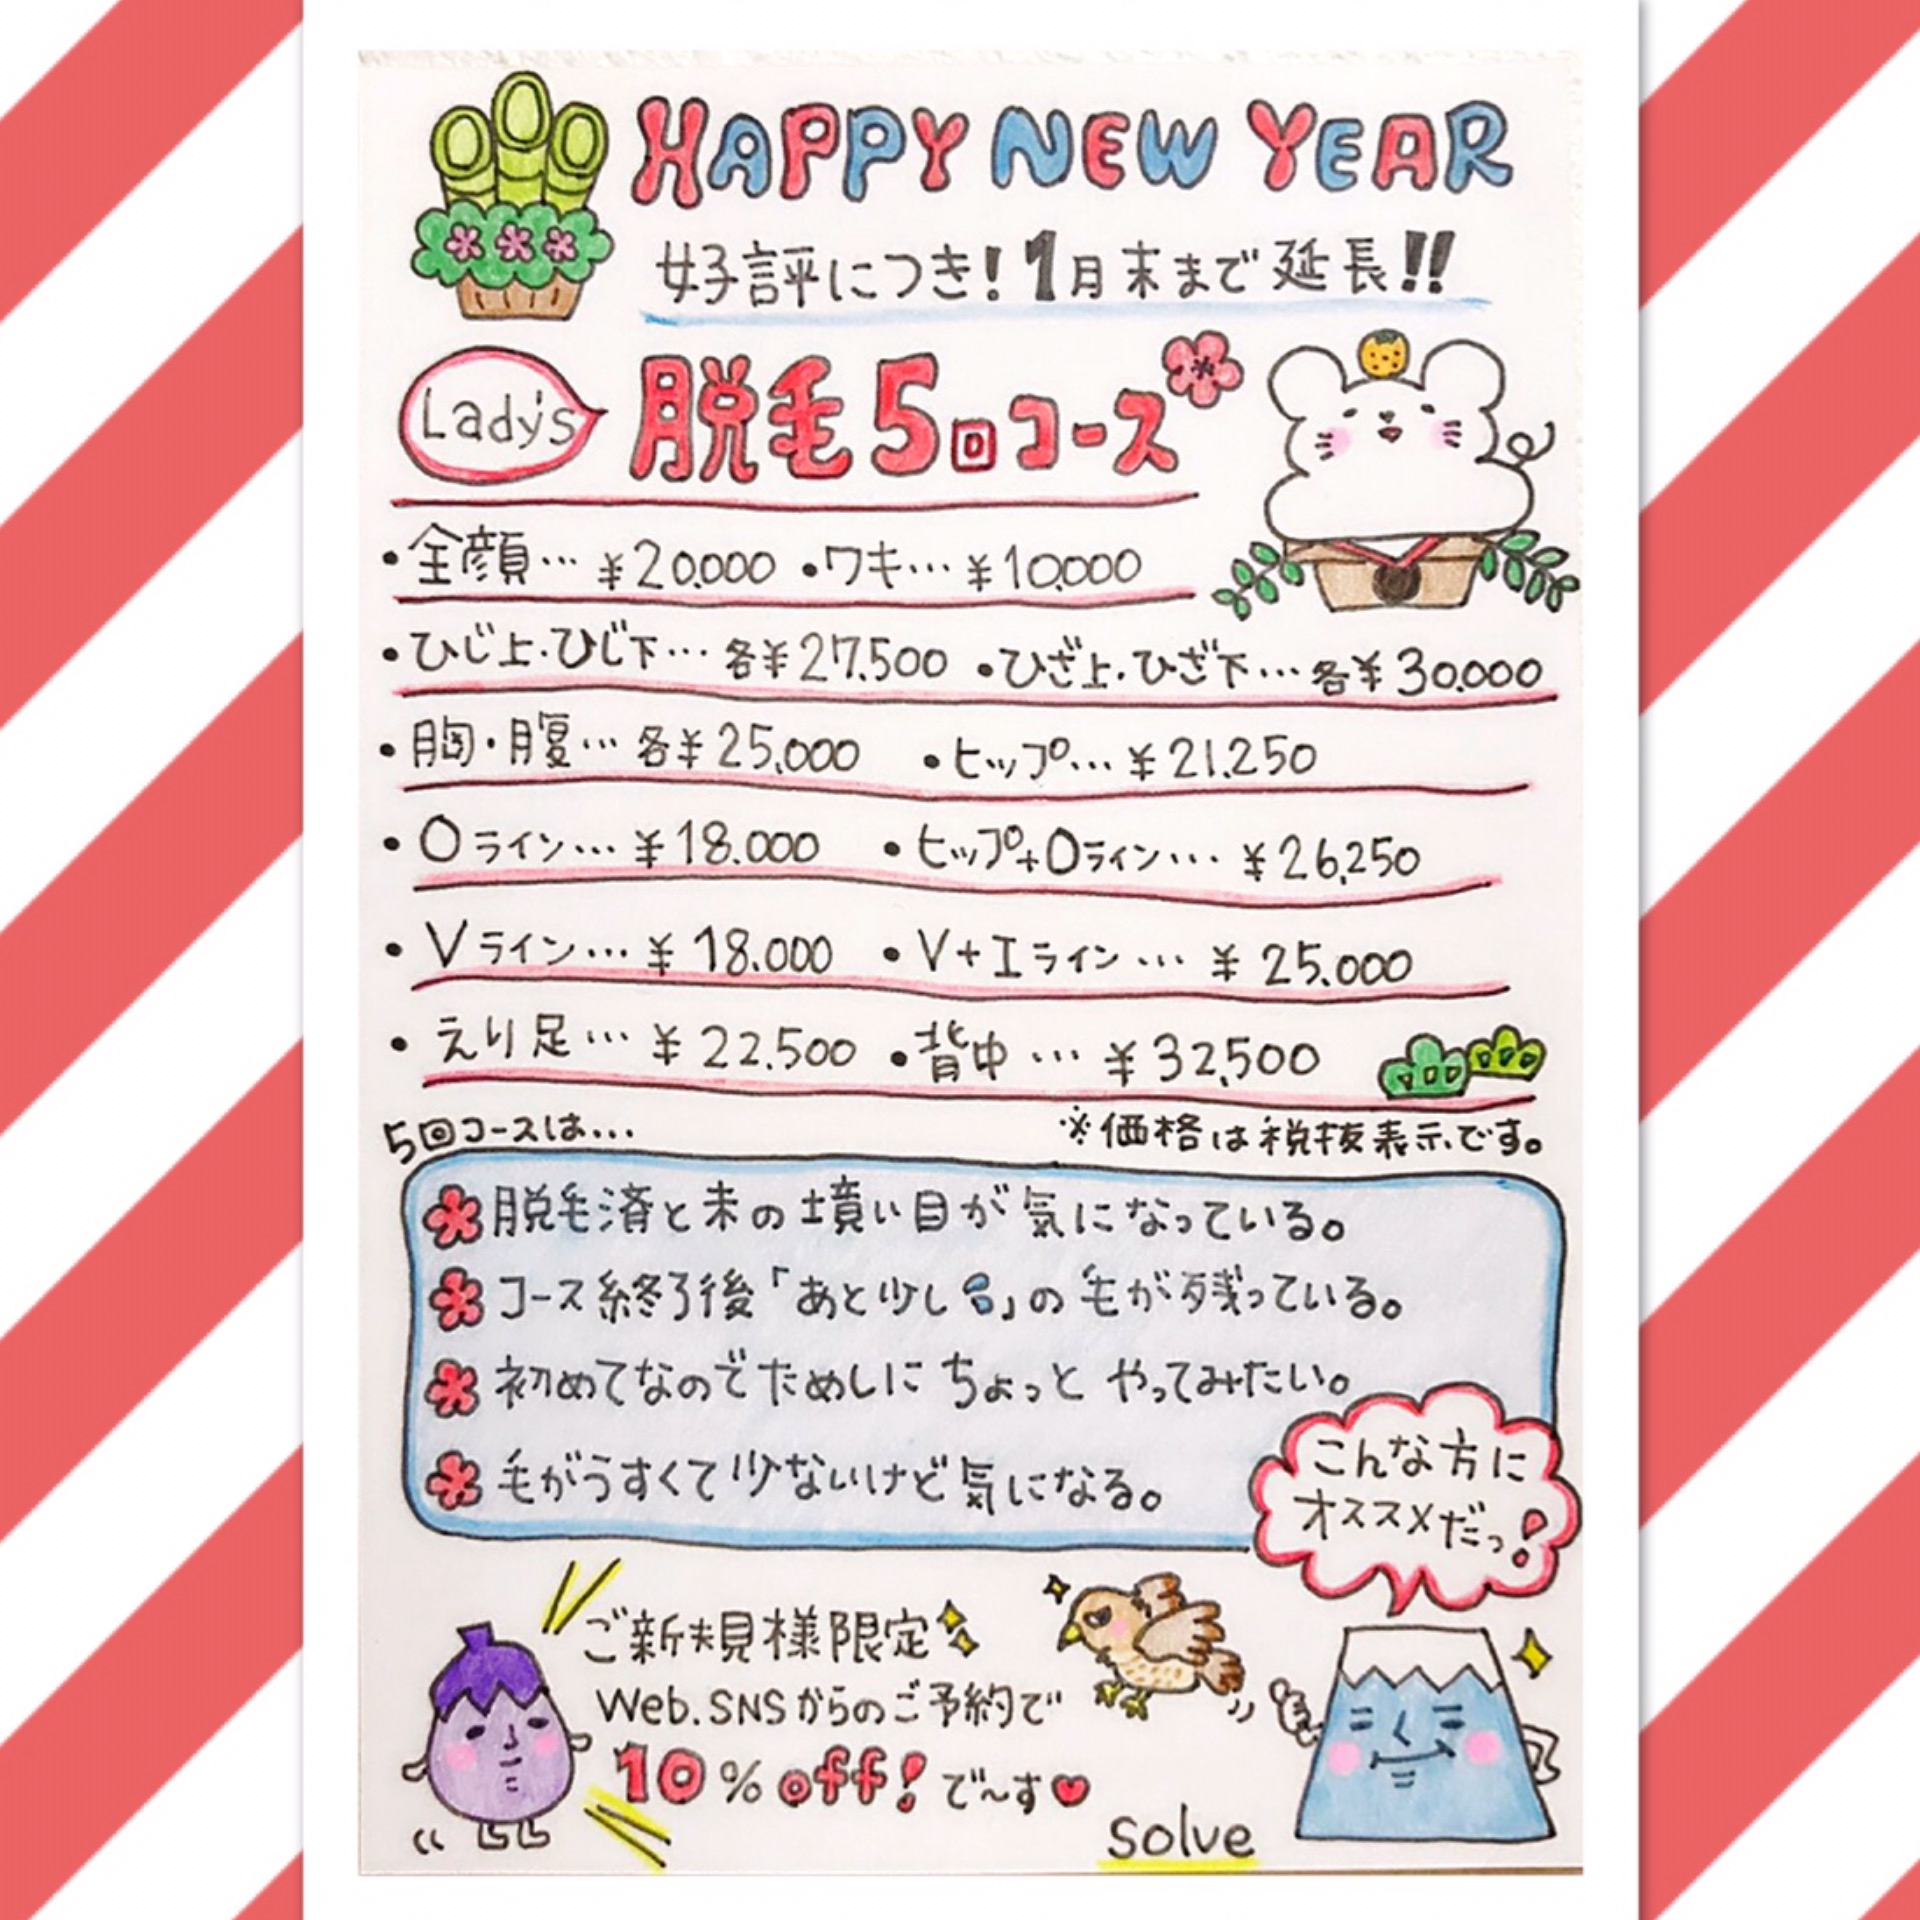 HAPPY NEW YEAR
好評につき!1月末まで延長!!
Lady's
脱毛5回コース
・全顔… ¥20.000 ・ワキ… ¥10,000
・ひじ上・ひじ下… 各¥27,500 ・ひざ上・ひざ下… 各¥30.000
・胸・腹… 各¥25,000 ・ヒップ… ¥21.250
・Oライン… ¥18.000 ・ヒップ+Oライン… ¥26,250
・Vライン… ¥18.000 ・V+Iライン… ¥25.000
・えり足… ¥22.500 ・背中… ¥32,500
5回コースは…
※価格は税抜表示です。
脱毛済と未の境い目が気になっている。
コース終了後「あと少し」の毛が残っている。
初めてなのでためしにちょっとやってみたい。
毛がうすくて少ないけど気になる。
こんな方に
オススメだっ!
ご新規様限定
Web.SNSからのご予約で
10%off!で〜す♥
solve